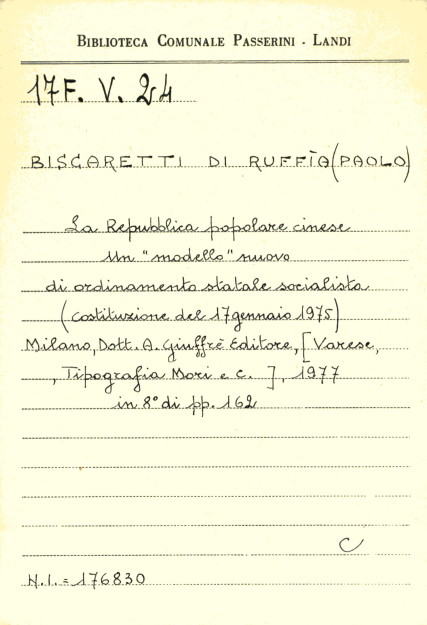 BIBLIOTECA COMUNALE PASSERINI - LANDI
17F. V. 24
BISCARETTI DI RUFFÌA (PAOLO)
La Repubblica popolare cinese
Un "modello" nuovo
di ordinamento statale socialista
(costituzione del 17 gennaio 1975)
Milano, Dott. A. Giuffrè Editore, [Varese,
, Tipografia Mori e C. ], 1977
in 8° di pp. 162
C
N.I. = 176830